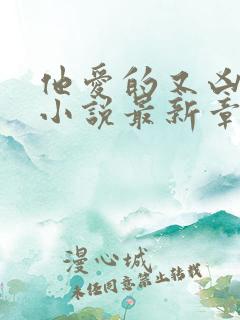 他愛的又凶
小說最新章
漫心城
未经同意禁止转载